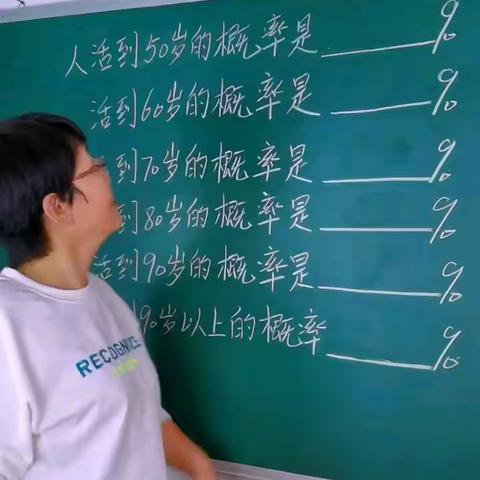 人活到50岁的概率是____%
活到60岁的概率是____%
到70岁的概率是____%
到80岁的概率是____%
活到90岁的概率是____%
90岁以上的概率____%
RECOGNIZE